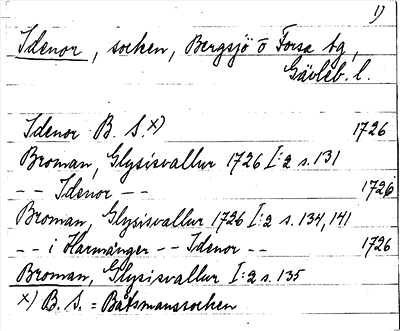 1)
Idenor, socken, Bergsjö o Forsa tg,
Gävleb. l.
Idenor B. S. x) 1726
Broman, Glysisvallur 1726 I:2 s. 131
-- Idenor -- 1726
Broman, Glysisvallur 1726 I:2 s. 134, 141
-- i Harmånger -- Idenor -- 1726
Broman, Glysisvallur I:2 s. 135
x) B. S. = Båtsmanssocken